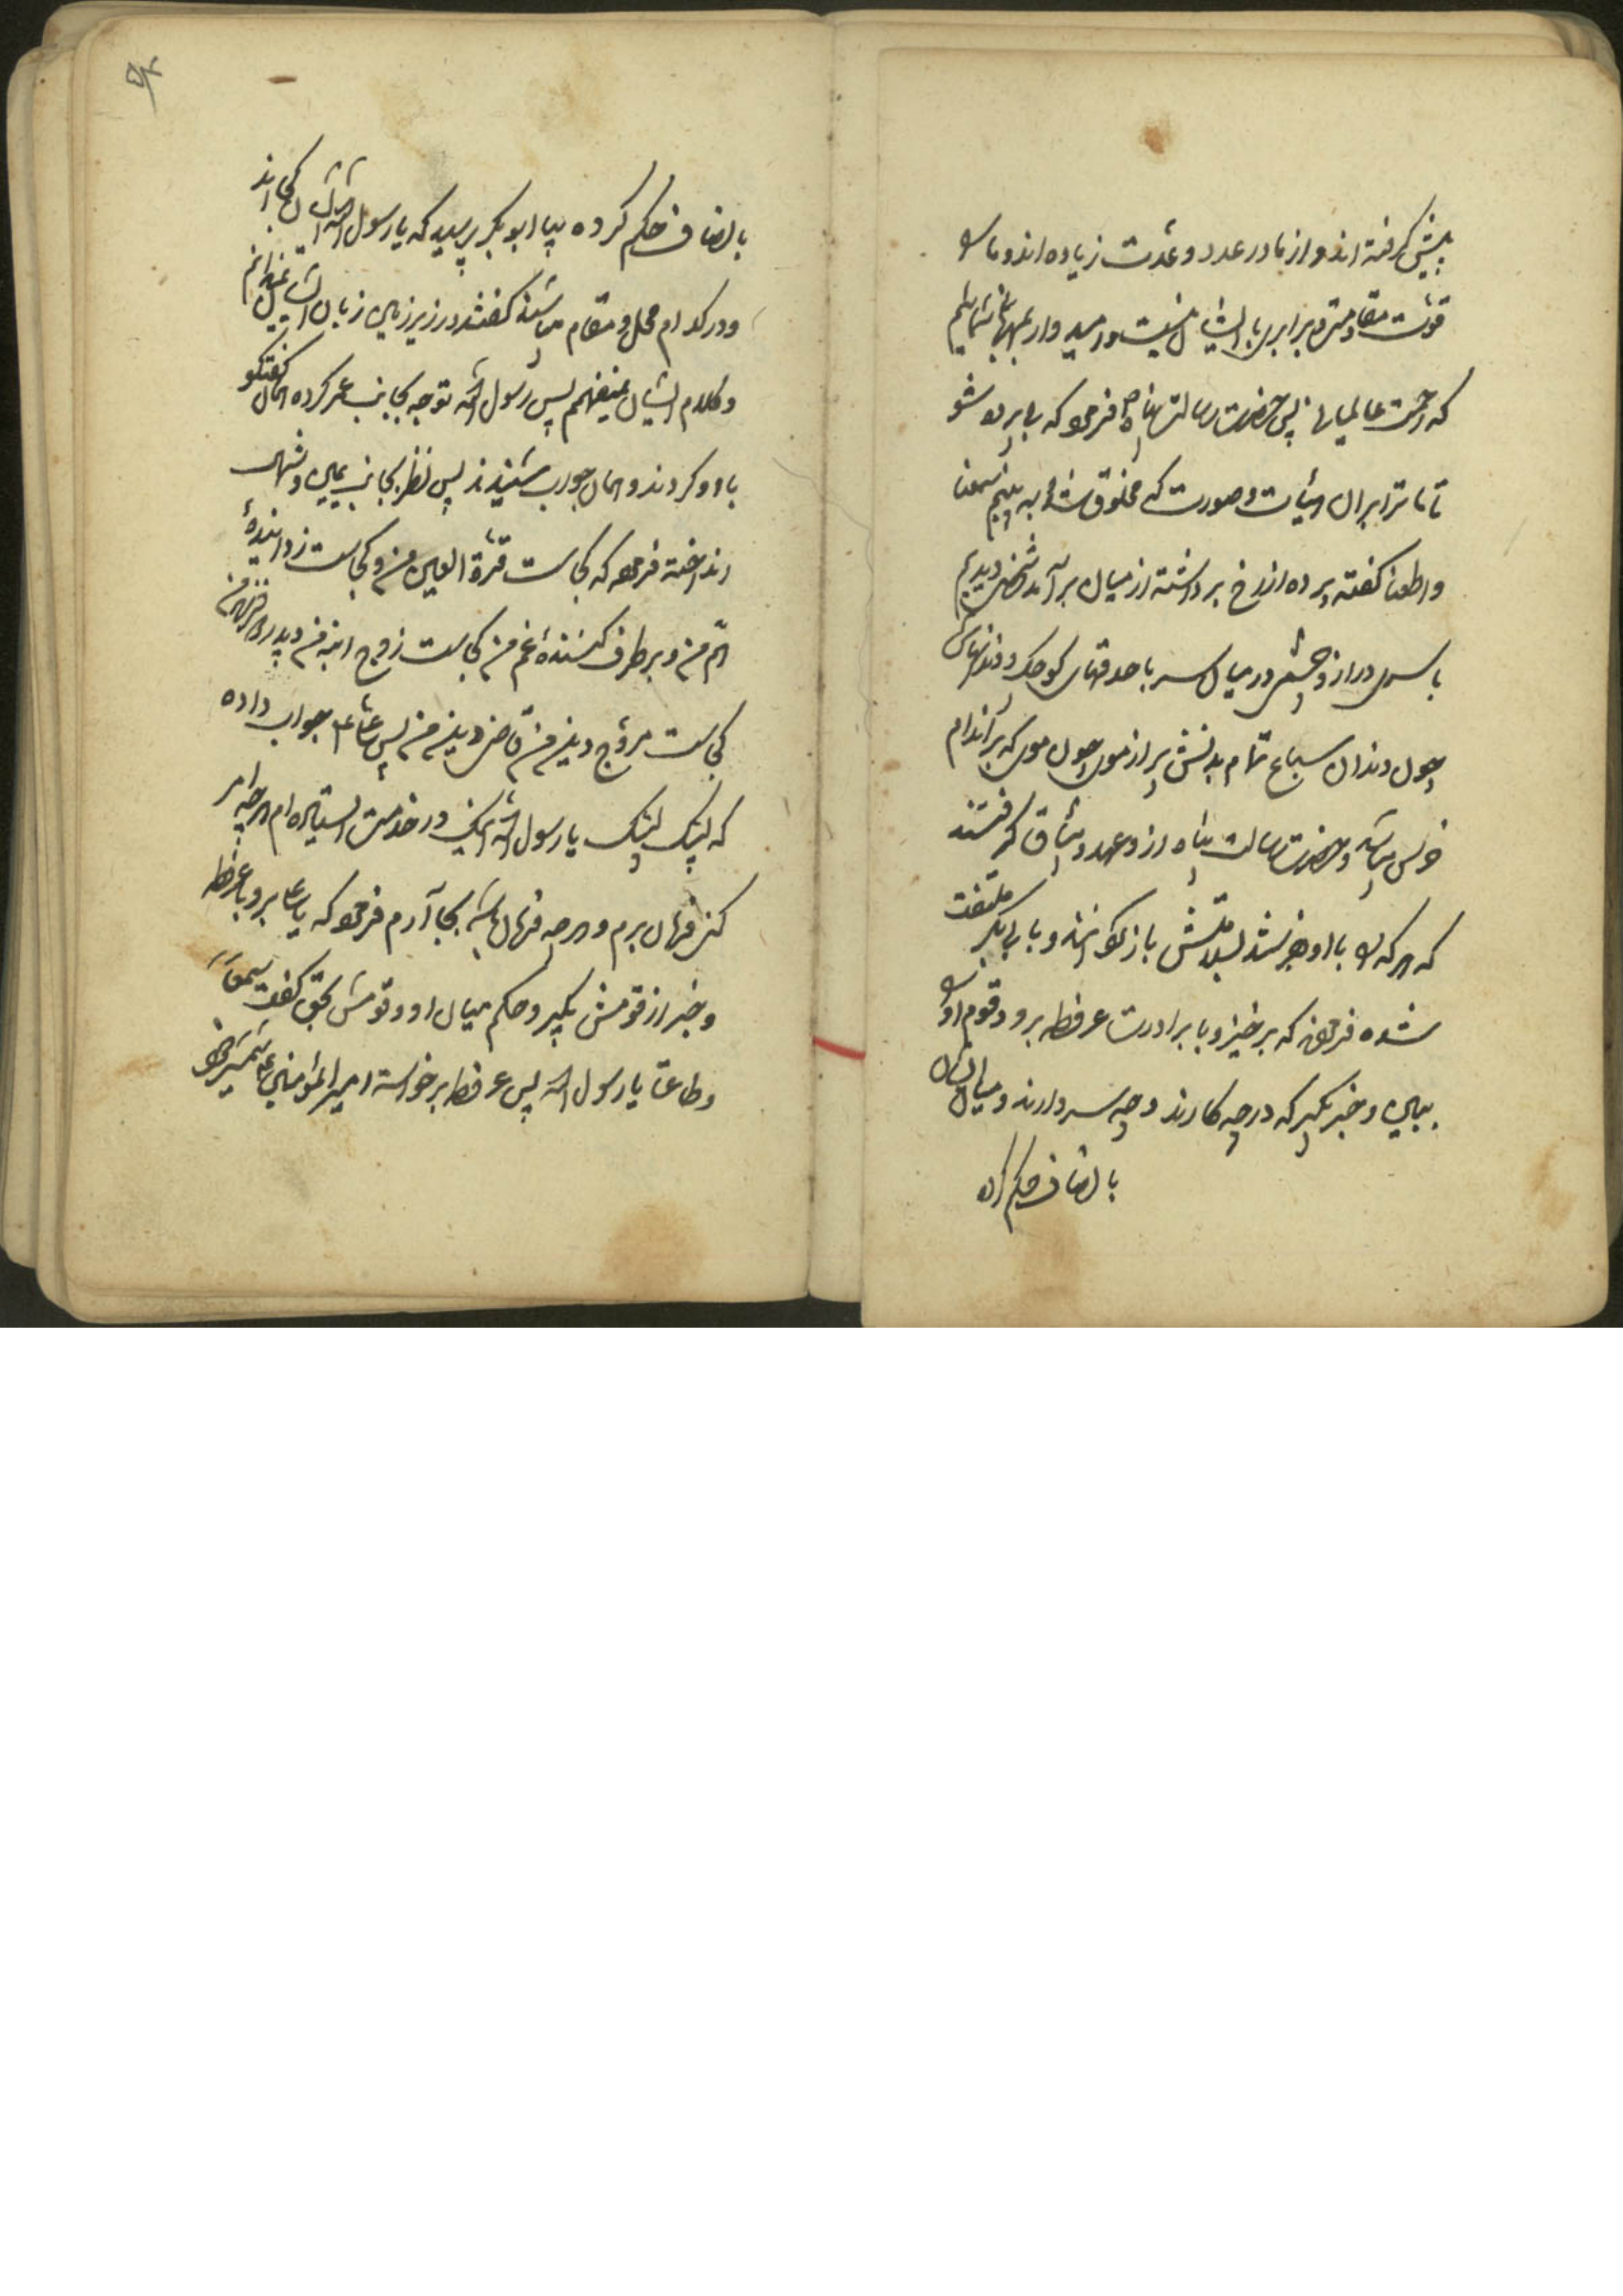 پیش گرفته اند و از ما در عدد و عدت زیاده اند و ما را
قوت مقاومت و برابری با ایشان نیست و امیدوار بمهربانی شمائیم
که رحمت عالمیانی پس حضرت رسالت پناه ص فرمود که برابر ما شو
تا ما ترا بر آن هیأت و صورت که مخلوق شده به بینیم سمعنا
و اطعنا گفته پرده از رخ برداشته از میان برآمد شخصی دیدیم
با سری دراز و چشمی در میان سر با حدقهای کوچک و دندانهای
چون دندان سباع تمام بدنش پر از موی چون موی که بر اندام
خرس میباشد و حضرت رسالت پناه از و عهد و میثاق گرفتند
که هر که را با او بفرستند بسلامتش باز گرداند و با ابی بکر ملتفت
شده فرمودند که برخیز و با برادرت عرفطه برو و قوم او را
ببین و خبر بگیر که در چه کارند و چه سر دارند و میان ایشان
بانصاف حکم کن
بانصاف حکم کرده بیا ابو بکر پرسید که یا رسول الله ایشان کجا اند
و در کدام محل و مقام میباشند گفتند در زیر زمین زبان ایشان نمیدانم
و کلام ایشان نمیفهمم پس رسول الله توجه بجانب عمر کرده همان گفتگو
با او کردند و همان جواب شنیدند پس نظر بجانب یمین و شمال
انداخته فرمود که کجاست قرة العین من و کجاست زدایندهٔ
هم من و بر طرف کنندهٔ غم من کجاست زوج ابنه من و پدر فرزندان من
کجاست مروج دین من و قاضی دین من پس علی ع جواب داده
که لبیک لبیک یا رسول الله اینک در خدمت ایستاده ام هر چه امر
کنی فرمان برم و هر چه فرمان باشد بجا آرم فرمود که یا علی برو با عرفطه
و خبر از قومش بگیر و حکم میان او و قومش بحق کن گفت سمعاً
و طاعة یا رسول الله پس عرفطه برخواسته امیر المؤمنین ع شمشیر خود